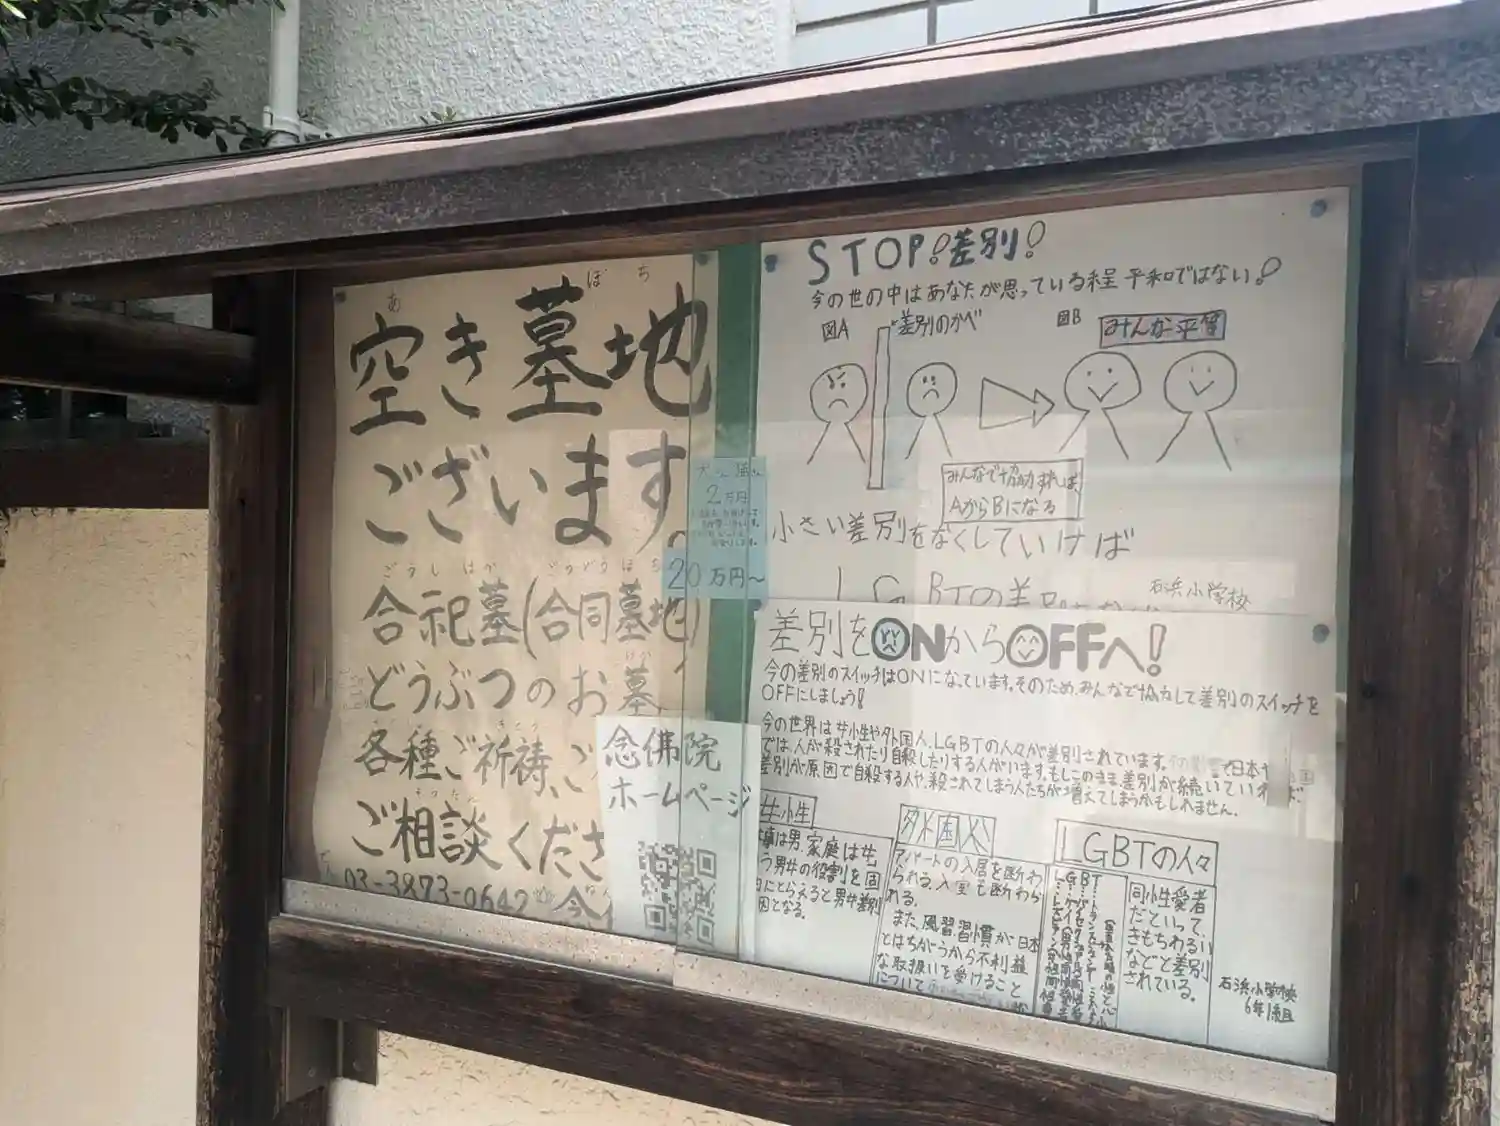 空き墓地
あ ぼち
ございます。
合祀墓(合同墓地)
ごうしはか ごうどうぼち
どうぶつのお墓
各種ご祈祷、ご
ご相談くださ
03-3873-0642
犬さん猫さん
2万円
20万円~
念佛院
ホームページ
STOP!差別!
今の世の中はあなたが思っている程平和ではない!
図A
差別のかべ
図B
みんな平等
みんなで協力すれば
AからBになる
小さい差別をなくしていけば
LGBTの差別
石浜小学校
差別をONからOFFへ!
今の差別のスイッチはONになっています。そのため、みんなで協力して差別のスイッチを
OFFにしましょう!
今の世界は女性や外国人、LGBTの人々が差別されています。
では、人が殺されたり自殺したりする人がいます。もしこのまま差別が続いていけば、
差別が原因で自殺する人や、殺されてしまう人たちが増えてしまうかもしれません。
女性
は男、家庭は女
う男女の役割を固
にとらえると男女差別
因となる。
外国人
アパートの入居を断わ
られる、入室も断わら
れる。
また、風習、習慣が日本
とはちがうから不利益
な取扱いを受けること
について
LGBTの人々
LGBT
同性愛者
だといって、
きもちわるい
などと差別
されている。
石浜小学校
6年1組